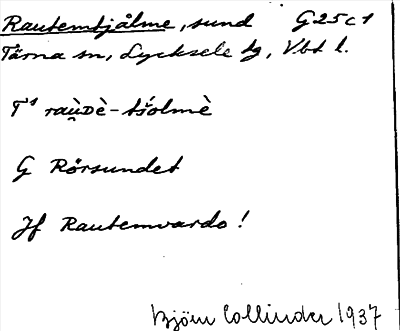 Rautemtjålme, sund G25c1
Tärna sn, Lycksele lg, Vbt l.
T¹ raùᴅè-tśolmè
G Rörsundet
Jf Rautemvardo!
Björn Collinder 1937